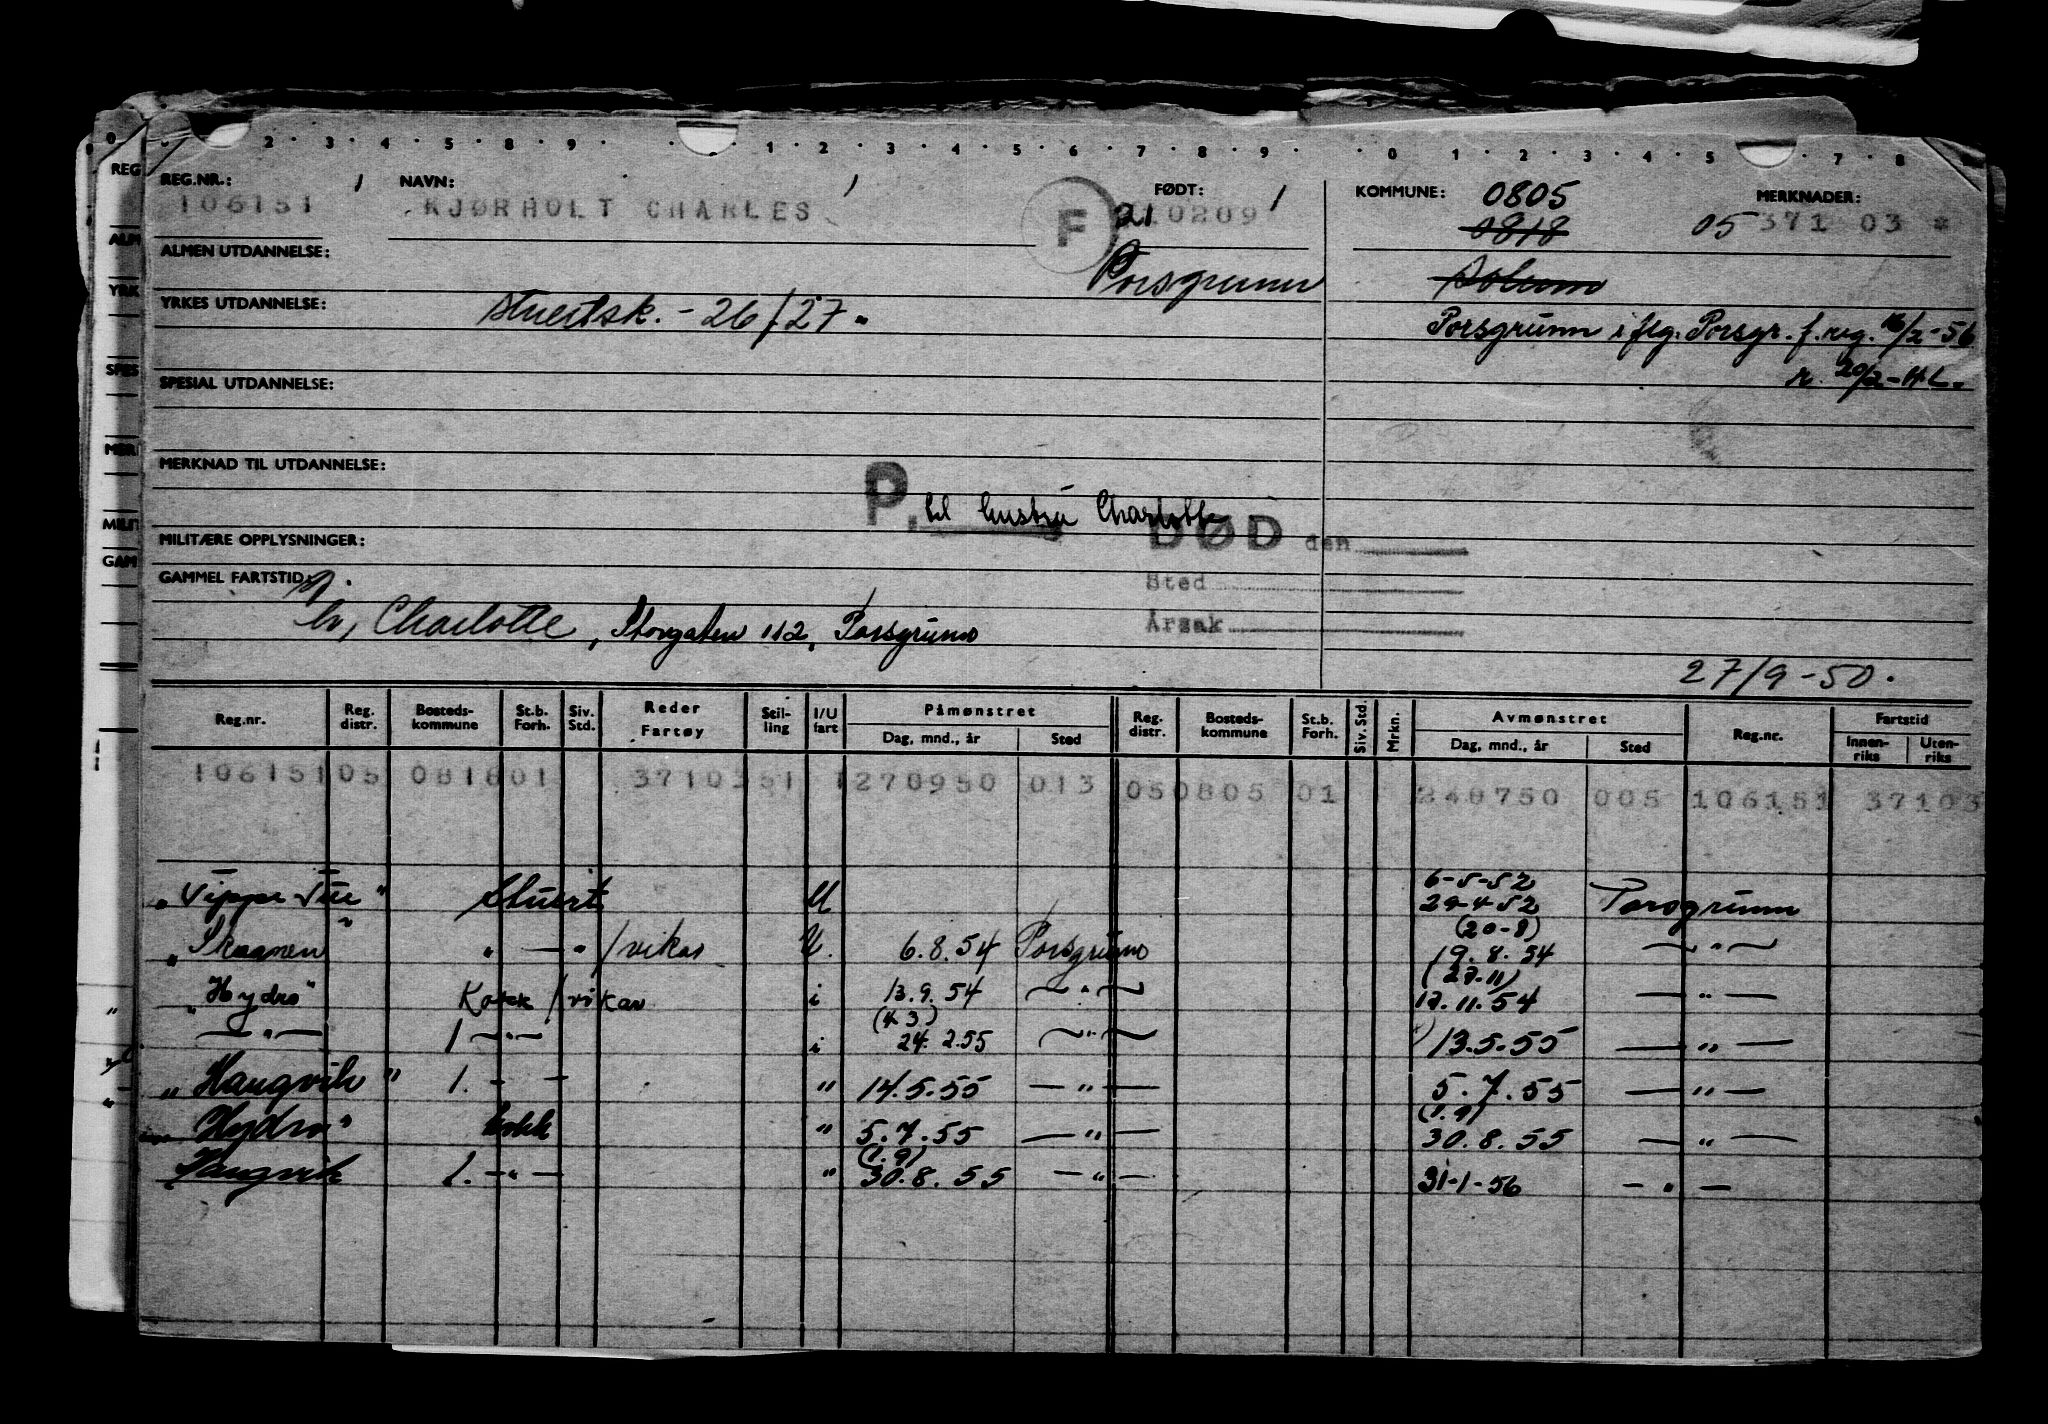 REG.NR.: NAVN: FØDT: KOMMUNE: 0805 MERKNADER:
106151 KJØRHOLT CHARLES F 210209 0818 05 371 03 *
ALMEN UTDANNELSE: Porsgrunn Solum
YRKES UTDANNELSE: Stuertsk. - 26/27. Porsgrunn i flg. Porsgr. f. reg. 16/2-56
20/2-HL.
SPESIAL UTDANNELSE:
MERKNAD TIL UTDANNELSE:
P. til hustru Charlotte
MILITÆRE OPPLYSNINGER: DØD den
GAMMEL FARTSTID: Sted
h, Charlotte, Storgaten 112, Porsgrunn Årsak
27/9-50.
Reg.nr. Reg. distr. Bosteds-kommune St.b. Forh. Siv. Std. Reder Fartøy Stil-ling I/U fart Påmønstret Dag, mnd., år Sted Reg. distr. Bosteds-kommune St.b. Forh. Siv. Std. Mrkn. Avmønstret Dag, mnd., år Sted Reg.nr. Fartstid Innen-riks Uten-riks
106151 05 0818 01 3710351 1 270950 013 05 0805 01 240750 005 106151 37103
6-5-52
" Vippe Tue " Stuert U 29-4-52 Porsgrunn
(20-8)
" Skagmen " " — " /vikar U. 6.8.54 Porsgrunn 19.8.54 — " —
(27.11)
" Hydro " Kokk /vikar i 13.9.54 — " — 17.11.54 — " —
(4.3)
— " — 1 — " — i 24.2.55 — " — 13.5.55 — " —
" Haugvik " 1. - — " 14.5.55 — " — 5.7.55 — " —
(1.9)
Hydro " kokk " 5.7.55 — " — 30.8.55 — " —
(1.9)
Haugvik 1. — " — " 30.8.55 — " — 31-1-56 — " —